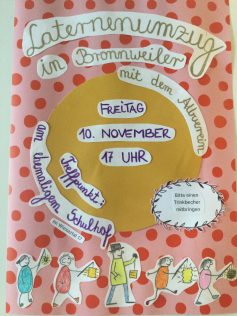 Laternenumzug
in Bronnweiler
mit dem Albverein
FREITAG
10. NOVEMBER
17 UHR
Treffpunkt:
am ehemaligem Schulhof
Bitte einen
Trinkbecher
mitbringen